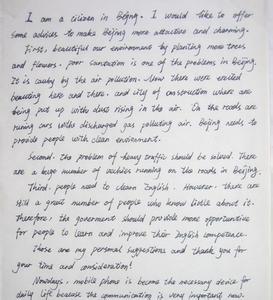 I am a citizen in Beijing. I would like to offer
some advices to make Beijing more attractive and charming.
First, beautiful our environment by planting more trees
and flowers. poor sanitation is one of the problems in Beijing.
It is caused by the air pollution. Now there were erected
beautying here and there. and city of construction where are
being put up with dust rising in the air. On the roads are
runing cars with discharged gas polluting air. Beijing needs to
provide people with clean enviroment.
Second. the problem of heavy traffic should be solved. There
are a huge number of vechies running on the roads in Beijing.
Third. people need to learn English. However. there are
still a great number of people who know little about it.
therefore, the government should provide more opportunities
for people to learn and improve their English competence.
Those are my personal suggestions and thank you for
your time and consideration!
Nowdays, mobile phone is become the necessary device for
daily life because the communication is very important now.